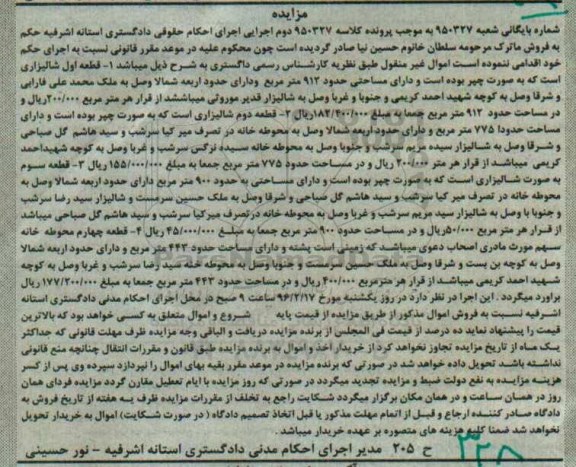 مزایده
شماره بایگانی شعبه ۹۵۰۳۲۷ به موجب پرونده کلاسه ۹۵۰۳۲۷ دوم اجرایی اجرای احکام حقوقی دادگستری استانه اشرفیه حکم
به فروش ماترک مرحومه سلطان خانوم حسین نیا صادر گردیده است چون محکوم علیه در موعد مقرر قانونی نسبت به اجرای حکم
خود اقدامی ننموده است اموال غیر منقول طبق نظریه کارشناس رسمی داگستری به شرح ذیل میباشد ۱- قطعه اول شالیزاری
است که به صورت چپر بوده است و دارای مساحتی حدود ۹۱۲ متر مربع ودارای حدود اربعه شمالا وصل به ملک محمد علی فارابی
و شرقا وصل به کوچه شهید احمد کریمی و جنوبا و غربا وصل به شالیزار قدیر موروثی میباششد از قرار هر متر مربع ۲۰۰/۰۰۰ریال و
در مساحت حدود ۹۱۲ متر مربع جمعا به مبلغ ۱۸۲/۴۰۰/۰۰۰ریال ۲- قطعه دوم شالیزاری است که به صورت چپر بوده است و دارای
مساحت حدودا ۷۷۵ متر مربع و دارای حدود اربعه شمالا وصل به محوطه خانه در تصرف میر کیا سرشب و سید هاشم گل صباحی
و شرقا وصل به شالیزار سیده مریم سرشب و جنوبا وصل به محوطه خانه سیده نرگس سرشب و غربا وصل به کوچه شهیداحمد
کریمی میباشد از قرار هر متر ۲۰۰/۰۰۰ ریال و در مساحت حدود ۷۷۵ متر مربع جمعا به مبلغ ۱۵۵/۰۰۰/۰۰۰ ریال ۳- قطعه سوم
به صورت شالیزاری است که به صورت چپر بوده است و دارای مساحتی به حدود ۹۰۰ متر مربع دارای حدود اربعه شمالا وصل به
محوطه خانه در تصرف میر کیا سرشب و سید هاشم گل صباحی و شرقا وصل به ملک حسین سرمست و شالیزار سید رضا سرشب
و جنوبا با وصل به شالیزار سید مریم سرشب و غربا وصل به محوطه خانه درتصرف میرکیا سرشب و سید هاشم گل صباحی میباشد
از قرار هر متر مربع ۵۰/۰۰۰ریال و در مساحت حدود ۹۰۰ متر مربع جمعا به مبلغ ۴۵/۰۰۰/۰۰۰ ریال ۴- قطعه چهارم محوطه خانه
سهم مورث مادری اصحاب دعوی میباشد که زمینی است پشته و دارای مساحت حدود ۴۴۳ متر مربع و دارای حدود اربعه شمالا
وصل به کوچه بن بست و شرقا وصل به ملک حسین سرمست و جنوبا وصل به محوطه خته سید رضا سرشب و غربا وصل به کوچه
شهید احمد کریمی میباشد از قرار هر مترمربع ۴۰۰/۰۰۰ ریال و در مساحت حدود ۴۴۳ متر مربع جمعا به مبلغ ۱۷۷/۲۰۰/۰۰۰ ریال
براورد میگردد . این اجرا در نظر دارد در روز یکشنبه مورخ ۹۶/۲/۱۷ ساعت ۹ صبح در محل اجرای احکام مدنی دادگستری استانه
اشرفیه نسبت به فروش اموال مذکور از طریق مزایده از قیمت پایه شروع و اموال متعلق به کسی خواهد بود که بالاترین
قیمت را پیشنهاد نماید ده درصد از قیمت فی المجلس از برنده مزایده دریافت و الباقی وجه مزایده ظرف مهلت قانونی که حداکثر
یک ماه از تاریخ مزایده تجاوز نخواهد کرد از خریدار اخذ و اموال به برنده مزایده طبق قانون و مقررات انتقال چنانچه منع قانونی
نداشته باشد تحویل داده خواهد شد در صورتی که برنده مزایده در موعد مقرر بقیه بهای اموال را نپردازد سپرده وی پس از کسر
هزینه مزایده به نفع دولت ضبط و مزایده تجدید میگردد در صورتی که روز مزایده با ایام تعطیل مقارن گردد مزایده فردای همان
روز در همان ساعت و در همان مکان برگزار میگردد شکایت راجع به تخلف از مقررات مزایده ظرف یه هفته از تاریخ فروش به
دادگاه صادر کننده ارجاع و قبل از اتمام مهلت مذکور یا قبل اتخاذ تصمیم دادگاه ( در صورت شکایت) اموال به خریدار تحویل
نخواهد شد ضمنا کلیه هزینه های متصوره بر عهده خریدار میباشد .
ح ۲۰۵ مدیر اجرای احکام مدنی دادگستری استانه اشرفیه - نور حسینی
۳۲۸
ParsNamadData